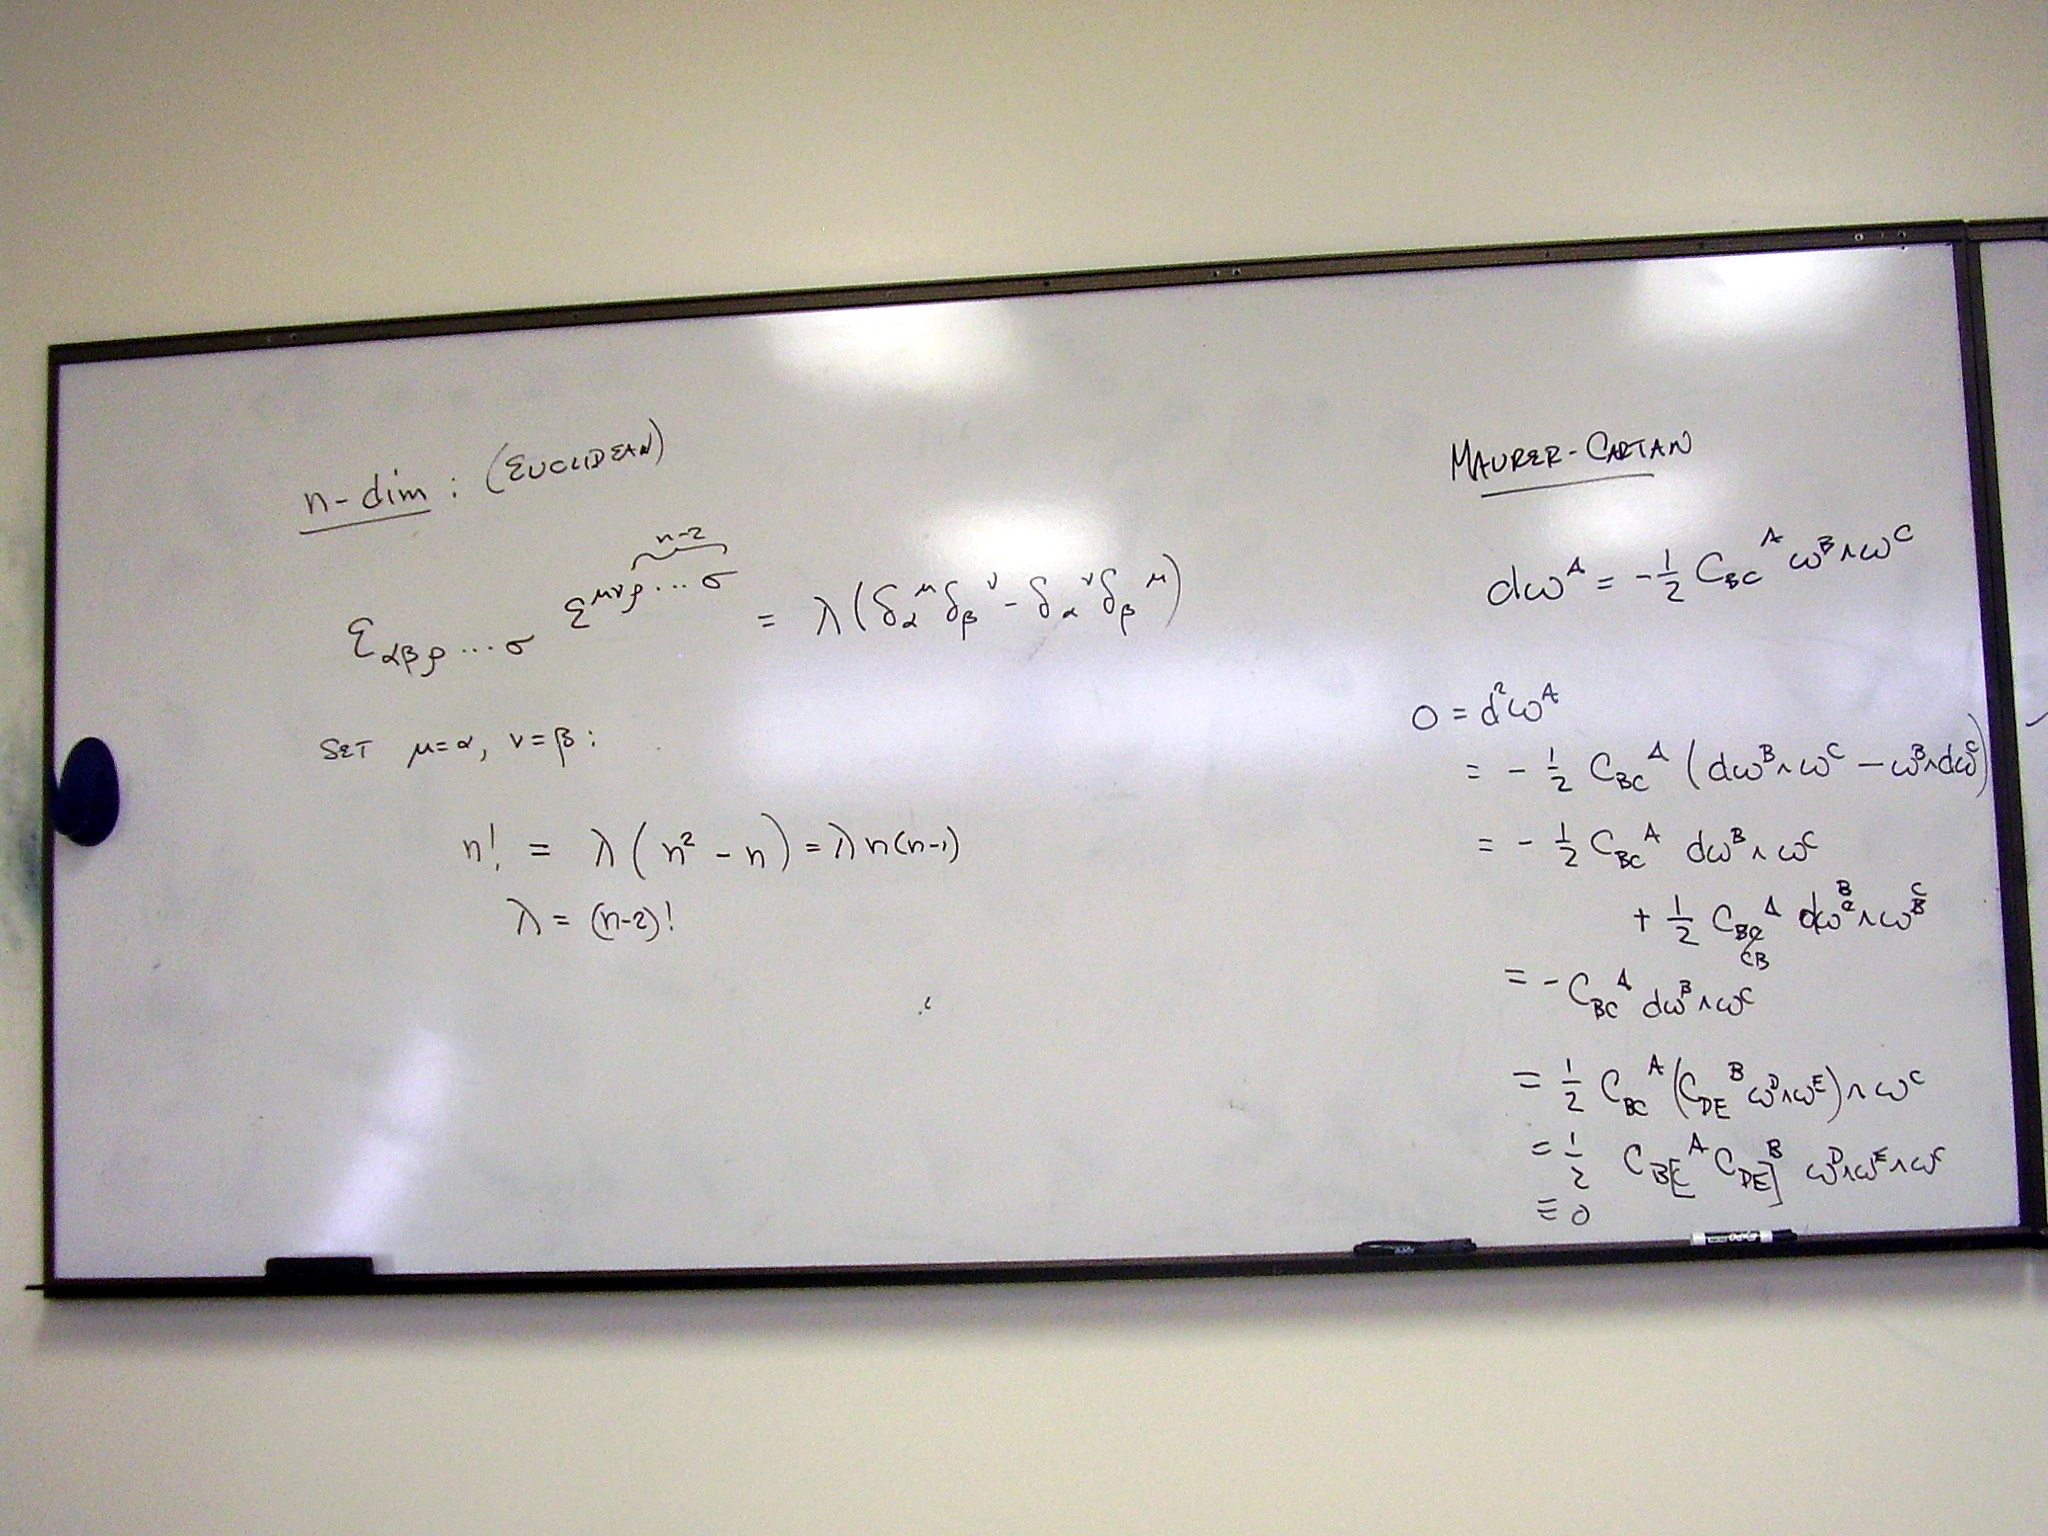 n-dim : (EUCLIDEAN)
n-2
ε_{αβρ...σ} ε^{μνρ...σ} = λ(δ_α^μ δ_β^ν - δ_α^ν δ_β^μ)
SET μ=α, ν=β:
n! = λ(n² - n) = λn(n-1)
λ = (n-2)!
MAURER-CARTAN
dω^A = -½ C_{BC}^A ω^B∧ω^C
0 = d²ω^A
= -½ C_{BC}^A (dω^B∧ω^C - ω^B∧dω^C)
= -½ C_{BC}^A dω^B∧ω^C
+ ½ C_{CB}^A dω^B∧ω^C
= -C_{BC}^A dω^B∧ω^C
= ½ C_{BC}^A (C_{DE}^B ω^D∧ω^E)∧ω^C
= ½ C_{B[C}^A C_{DE]}^B ω^D∧ω^E∧ω^C
≡ 0